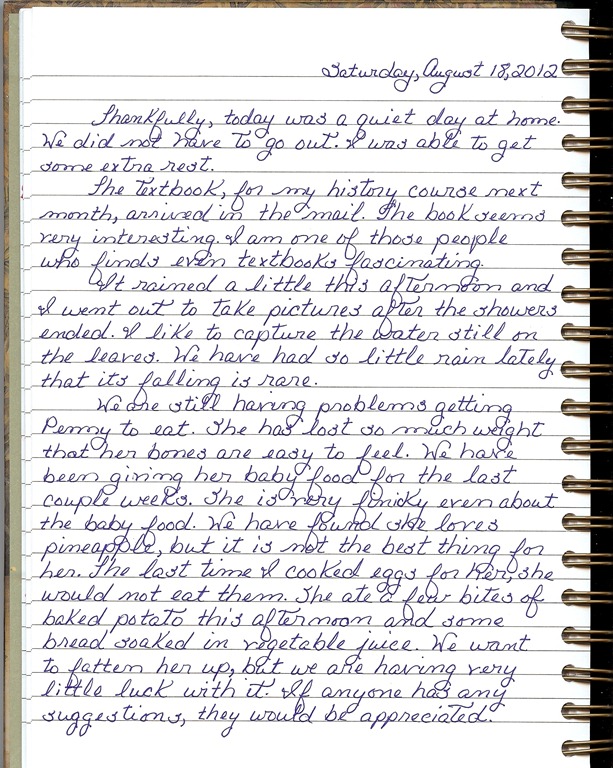 Saturday, August 18, 2012
Thankfully, today was a quiet day at home.
We did not have to go out. I was able to get
some extra rest.
The textbook, for my history course next
month, arrived in the mail. The book seems
very interesting. I am one of those people
who finds even textbooks fascinating.
It rained a little this afternoon and
I went out to take pictures after the showers
ended. I like to capture the water still on
the leaves. We have had so little rain lately
that its falling is rare.
We are still having problems getting
Penny to eat. She has lost so much weight
that her bones are easy to feel. We have
been giving her baby food for the last
couple weeks. She is very finicky even about
the baby food. We have found she loves
pineapple, but it is not the best thing for
her. The last time I cooked eggs for her, she
would not eat them. She ate a few bites of
baked potato this afternoon and some
bread soaked in vegetable juice. We want
to fatten her up, but we are having very
little luck with it. If anyone has any
suggestions, they would be appreciated.